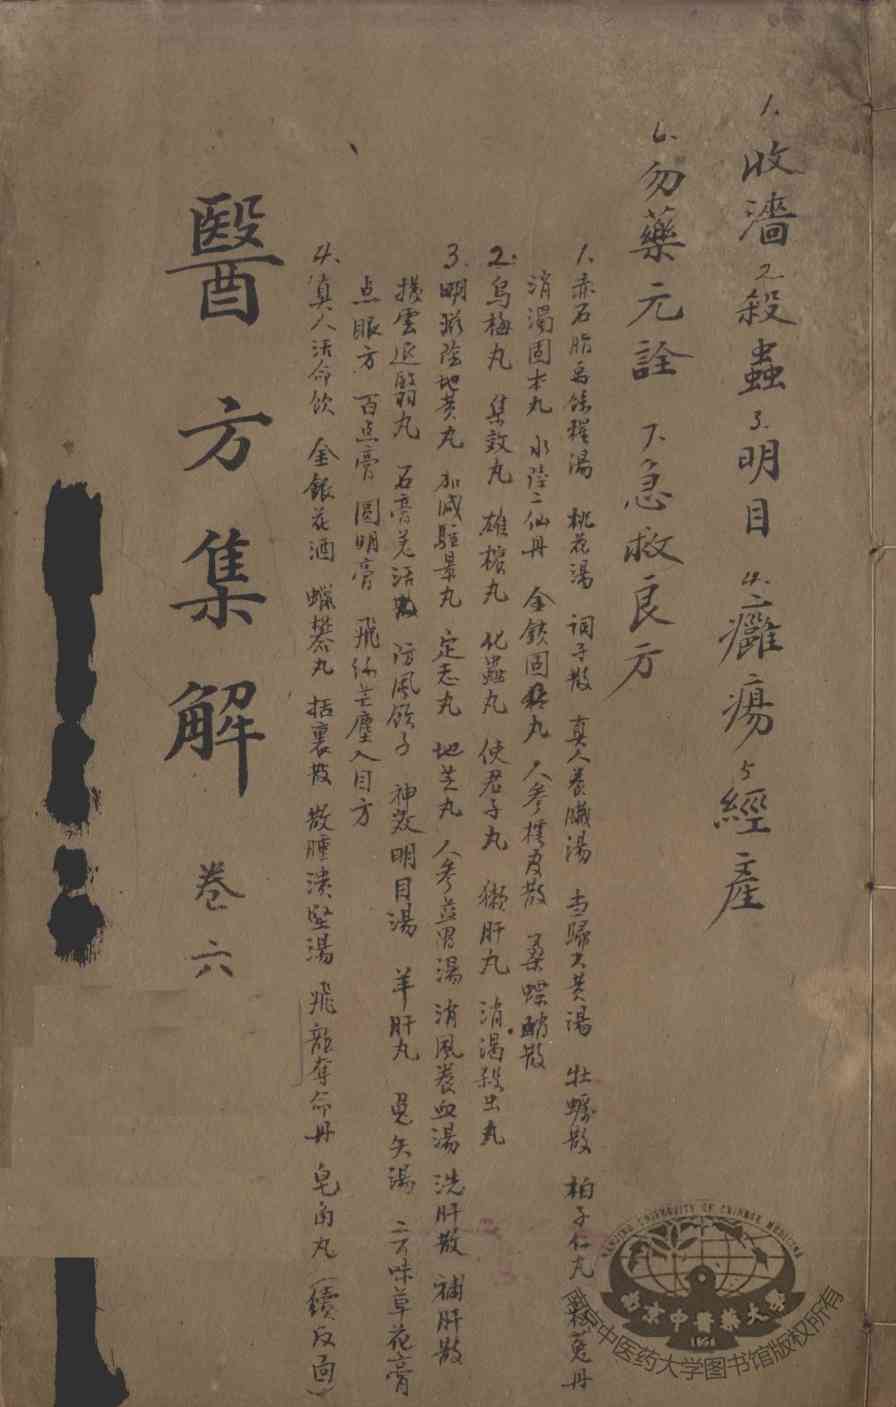 1. 收濇 2. 殺蟲 3. 明目 4. 癰瘍 5 經產
6. 勿藥元詮 7. 急救良方
1. 赤石脂禹餘糧湯 桃花湯 訶子散 真人養臟湯 當歸六黃湯 牡蠣散 柏子仁丸 菟丹
消濁固本丸 水陸二仙丹 金鎖固精丸 人參樗皮散 桑螵蛸散
2. 烏梅丸 集效丸 雄檳丸 化蟲丸 使君子丸 獺肝丸 消渴殺虫丸
3. 明滋陰地黃丸 加減駐景丸 定志丸 地芝丸 人參益胃湯 消風養血湯 洗肝散 補肝散
撥雲退翳丸 石膏羌活散 防風飲子 神效明目湯 羊肝丸 兔矢湯 二百味草花膏
点眼方 百点膏 圓明膏 飛絲芒塵入目方
4. 真人活命飲 金銀花酒 蠟礬丸 托裏散 散腫潰堅湯 飛龍奪命丹 皂角丸（續反面）
醫方集解 卷六
NANJING UNIVERSITY OF CHINESE MEDICINE
南京中醫藥大學
1954
南京中医药大学图书馆版权所有